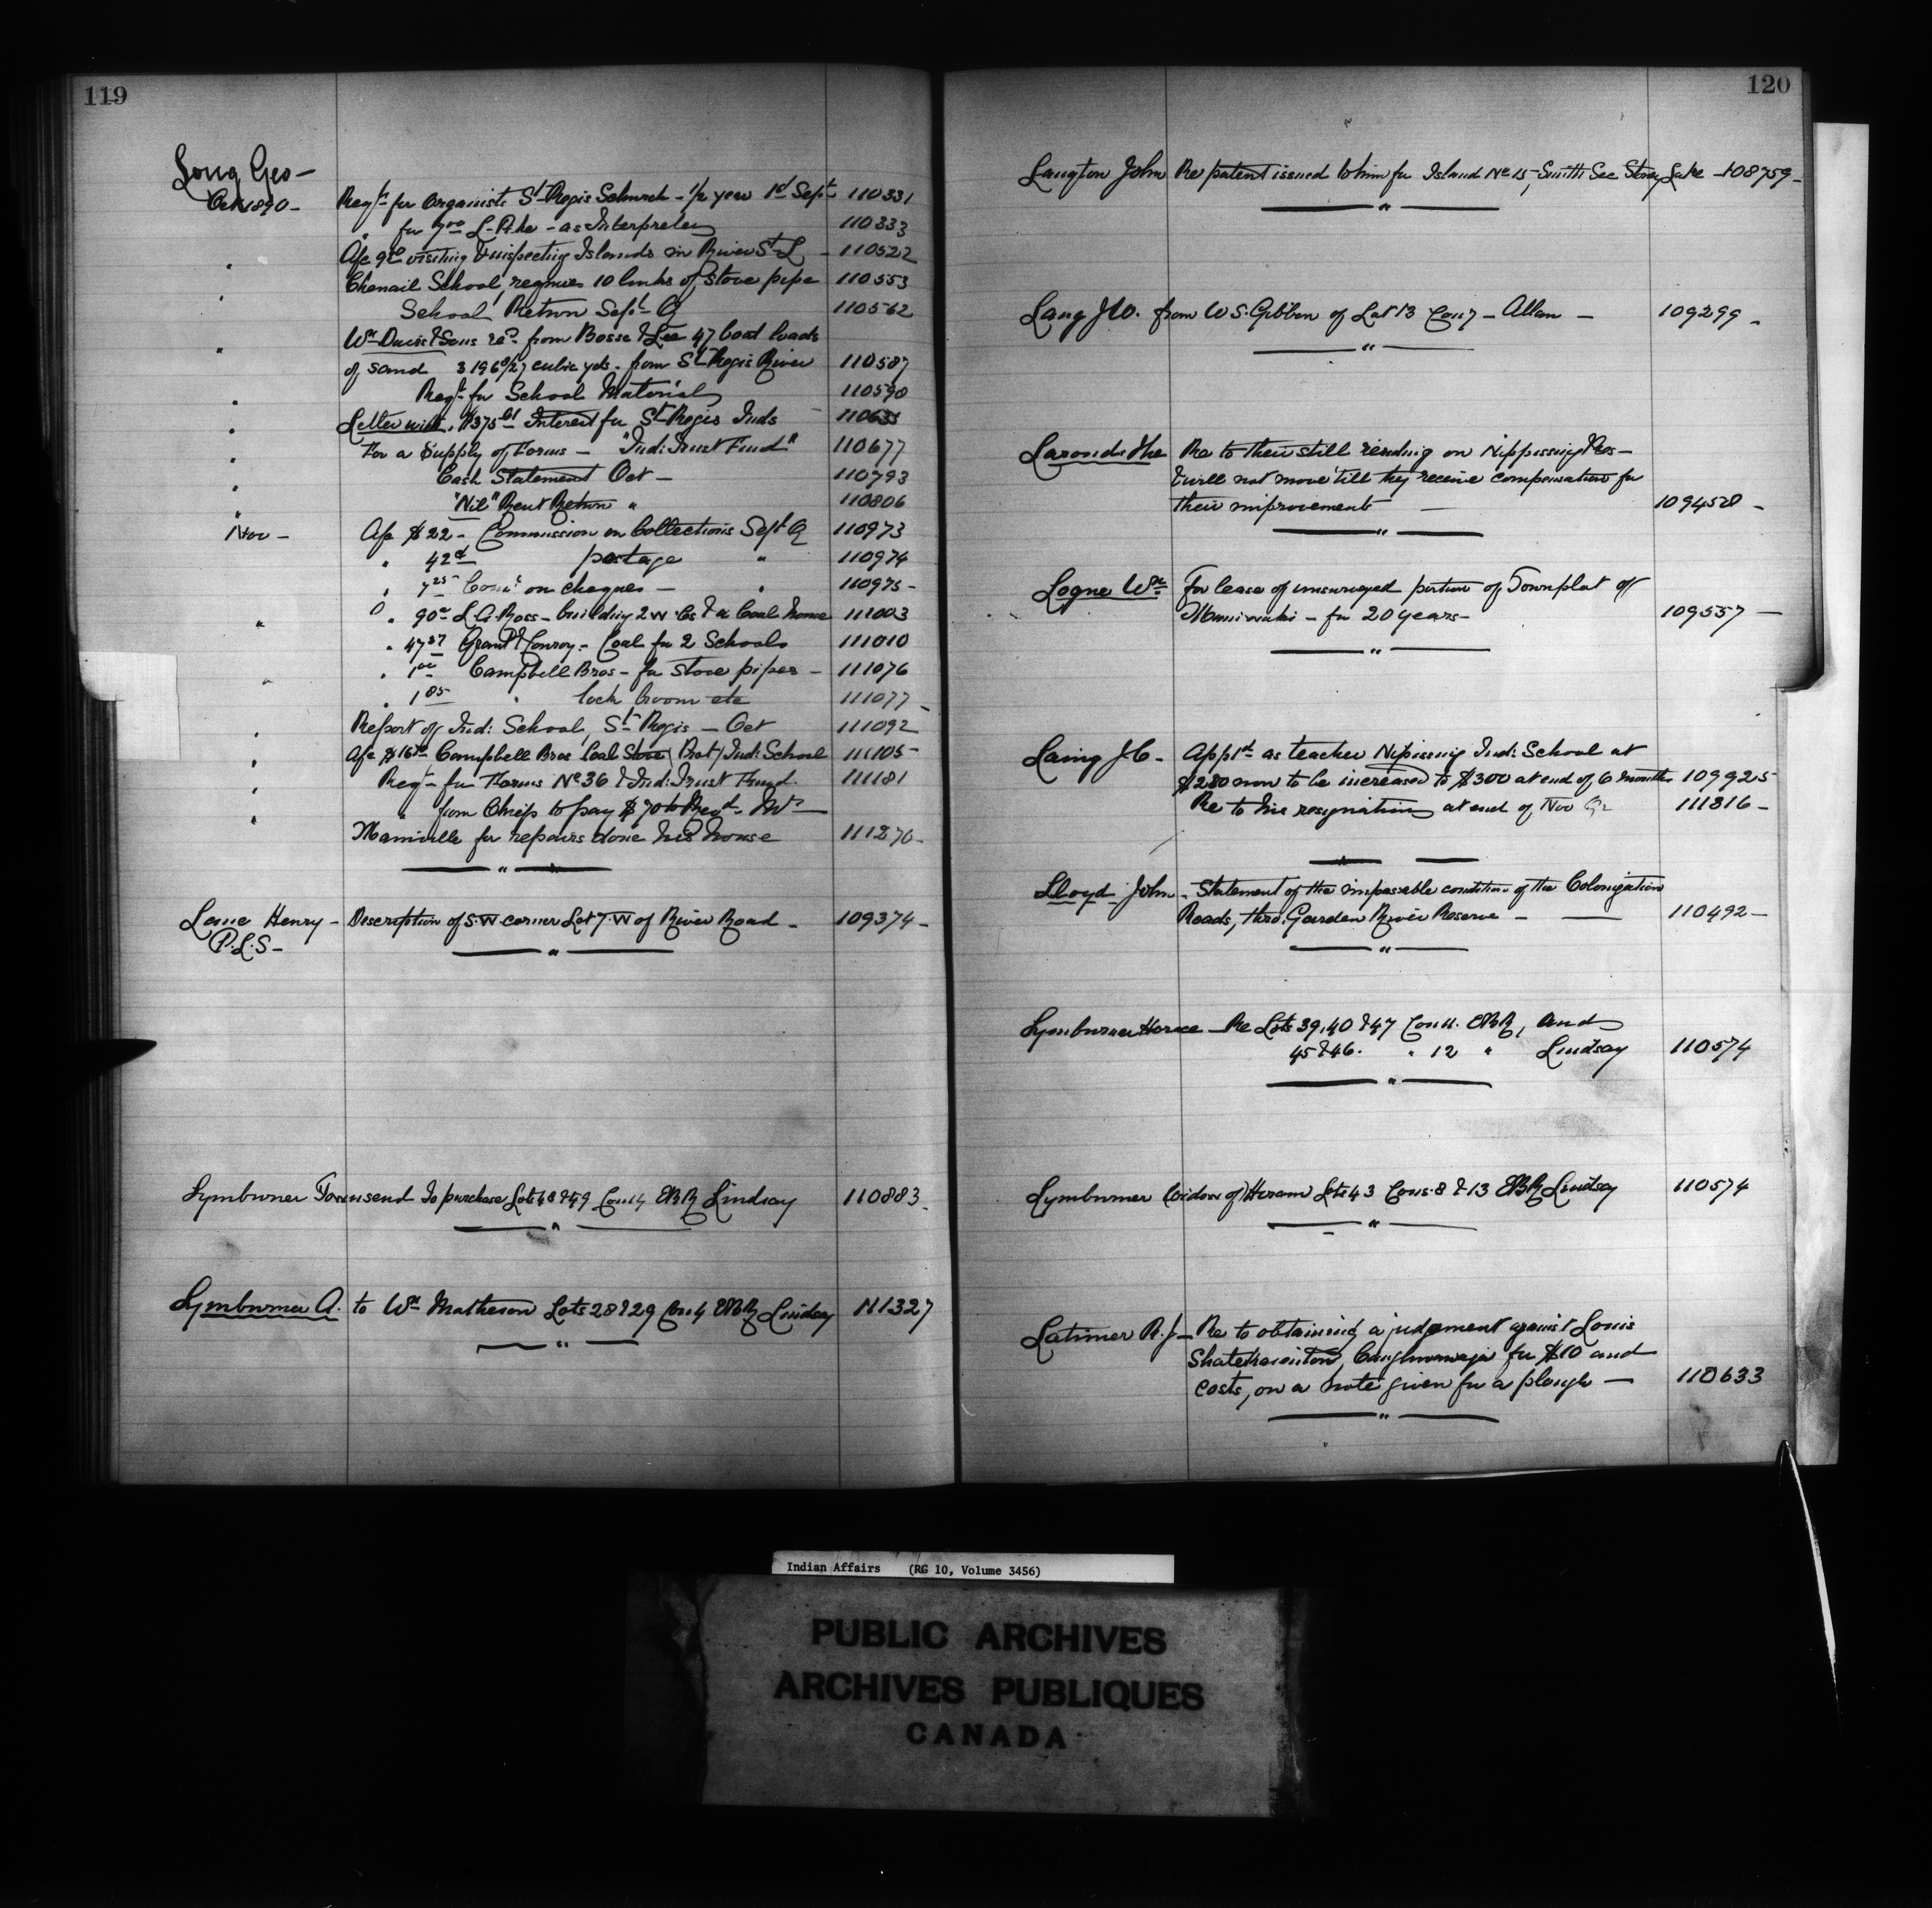 119
Long Geo -
Oct 1890 - Reqt. for Organists St Regis Church - 1/2 year 1st Sept 110331
" for 7.00 L. - as Interpreter 110333
" Afc visiting & inspecting Islands in River St L - 110522
Chenail School, requires 10 links of stove pipe 110553
" School Return Sept Q 110562
Wm Davis & Sons recd. from Bosse & Lee 47 boat loads
" of sand 3196 /27 cubic yds. from St Regis River 110587
Reqt. for School Material 110590
" Letter with $375 Interest for St Regis Inds - 110635
" For a Supply of Forms - "Ind: Trust Fund" 110677
" Cash Statement Oct - 110793
" "Nil" Rent Return " 110806
Nov - Afc $22 - Commission on Collections Sept Q 110973
" 42c postage " 110974
" 7 25 Comn. on cheques - " 110975 -
" " 90 L.A. Ross - building 2 W.Cs & a Coal house 111003
" 47 37 Grant & Conroy - Coal for 2 Schools 111010
" " 1 00 Campbell Bros - for stove pipes - 111076
" 1 85 " lock broom etc 111077 -
Report of Ind: School, St Regis - Oct 111092
" Afc Campbell Bros Coal Stove (Prot) Ind: School 111105
" Reqt - for Forms No 36 & Ind: Trust Fund. 111181
" " from Chiefs to pay $70 to Revd. Mr
" Mainville for repairs done his house 111270 -
"
Lane Henry - Description of S.W. corner Lot 7. W of River Road - 109374 -
P.L.S -
"
Lymburner Townsend To purchase Lots 48 & 49 Con 4 EBR Lindsay 110883 -
"
Lymburner A. to Wm Matheson Lots 28 & 29 Con 4 EBR Lindsay 111327
"
120
Langton John Re patent issued to him for Island No 15, Smith See Stoney Lake - 108759 -
"
Lang J.W. from W.S. Gibbon of Lot 13 Con 7 - Allan - 109299 -
"
Laronde The Re to their still residing on Nippissing Res -
& will not move 'till they receive compensation for
their improvements - 109458 -
"
Logue Wm For lease of unsurveyed portion of Townplot of
Maniwaki - for 20 years - 109557 -
"
Laing J.C. - Apptd. as teacher Nipissing Ind: School at
$280 now to be increased to $300 at end of 6 months 109925
Re to his resignation at end of Nov 111816 -
"
Lloyd John - Statement of the impassable condition of the Colonization
Roads, thro, Garden River Reserve - 110492 -
"
Lymburner Horace - Re Lots 39, 40 & 47 Con 11. EBR, and
45 & 46. " 12 " Lindsay 110574
"
Lymburner (widow of) Hiram Lots 43 Cons. 8 & 13 EBR Lindsay 110574
"
Latimer R.J - Re to obtaining a judgement against Louis
Caughnawaga for $10 and
costs, on a note given for a plough - 110633
"
Indian Affairs (RG 10, Volume 3456)
PUBLIC ARCHIVES
ARCHIVES PUBLIQUES
CANADA